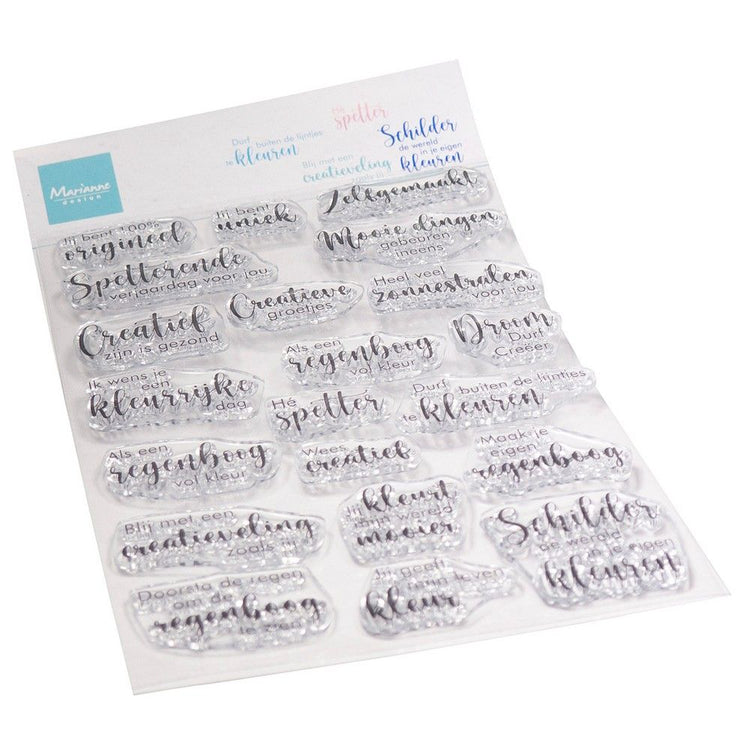 Marianne
design
Durf buiten de lijntjes
te kleuren
Hé
spetter
Blij met een
creatieveling
zoals jij
Schilder
de wereld
in je eigen
kleuren
Jij bent 100%
origineel
Jij bent
uniek
Zelfgemaakt
Spetterende
verjaardag voor jou
Mooie dingen
gebeuren
ineens
Creatief
zijn is gezond
Creatieve
groetjes
Heel veel
zonnestralen
voor jou
Als een
regenboog
vol kleur
Droom
Durf
Creëer
Ik wens je
een
kleurrijke
dag
Hé
spetter
Durf buiten de lijntjes
te kleuren
Als een
regenboog
vol kleur
Wees
creatief
Maak je
eigen
regenboog
Blij met een
creatieveling
zoals jij
Jij kleurt
mijn wereld
mooier
Schilder
de wereld
in je eigen
kleuren
Doorsta de regen
om de
regenboog
te zien
Jij geeft
mijn leven
kleur